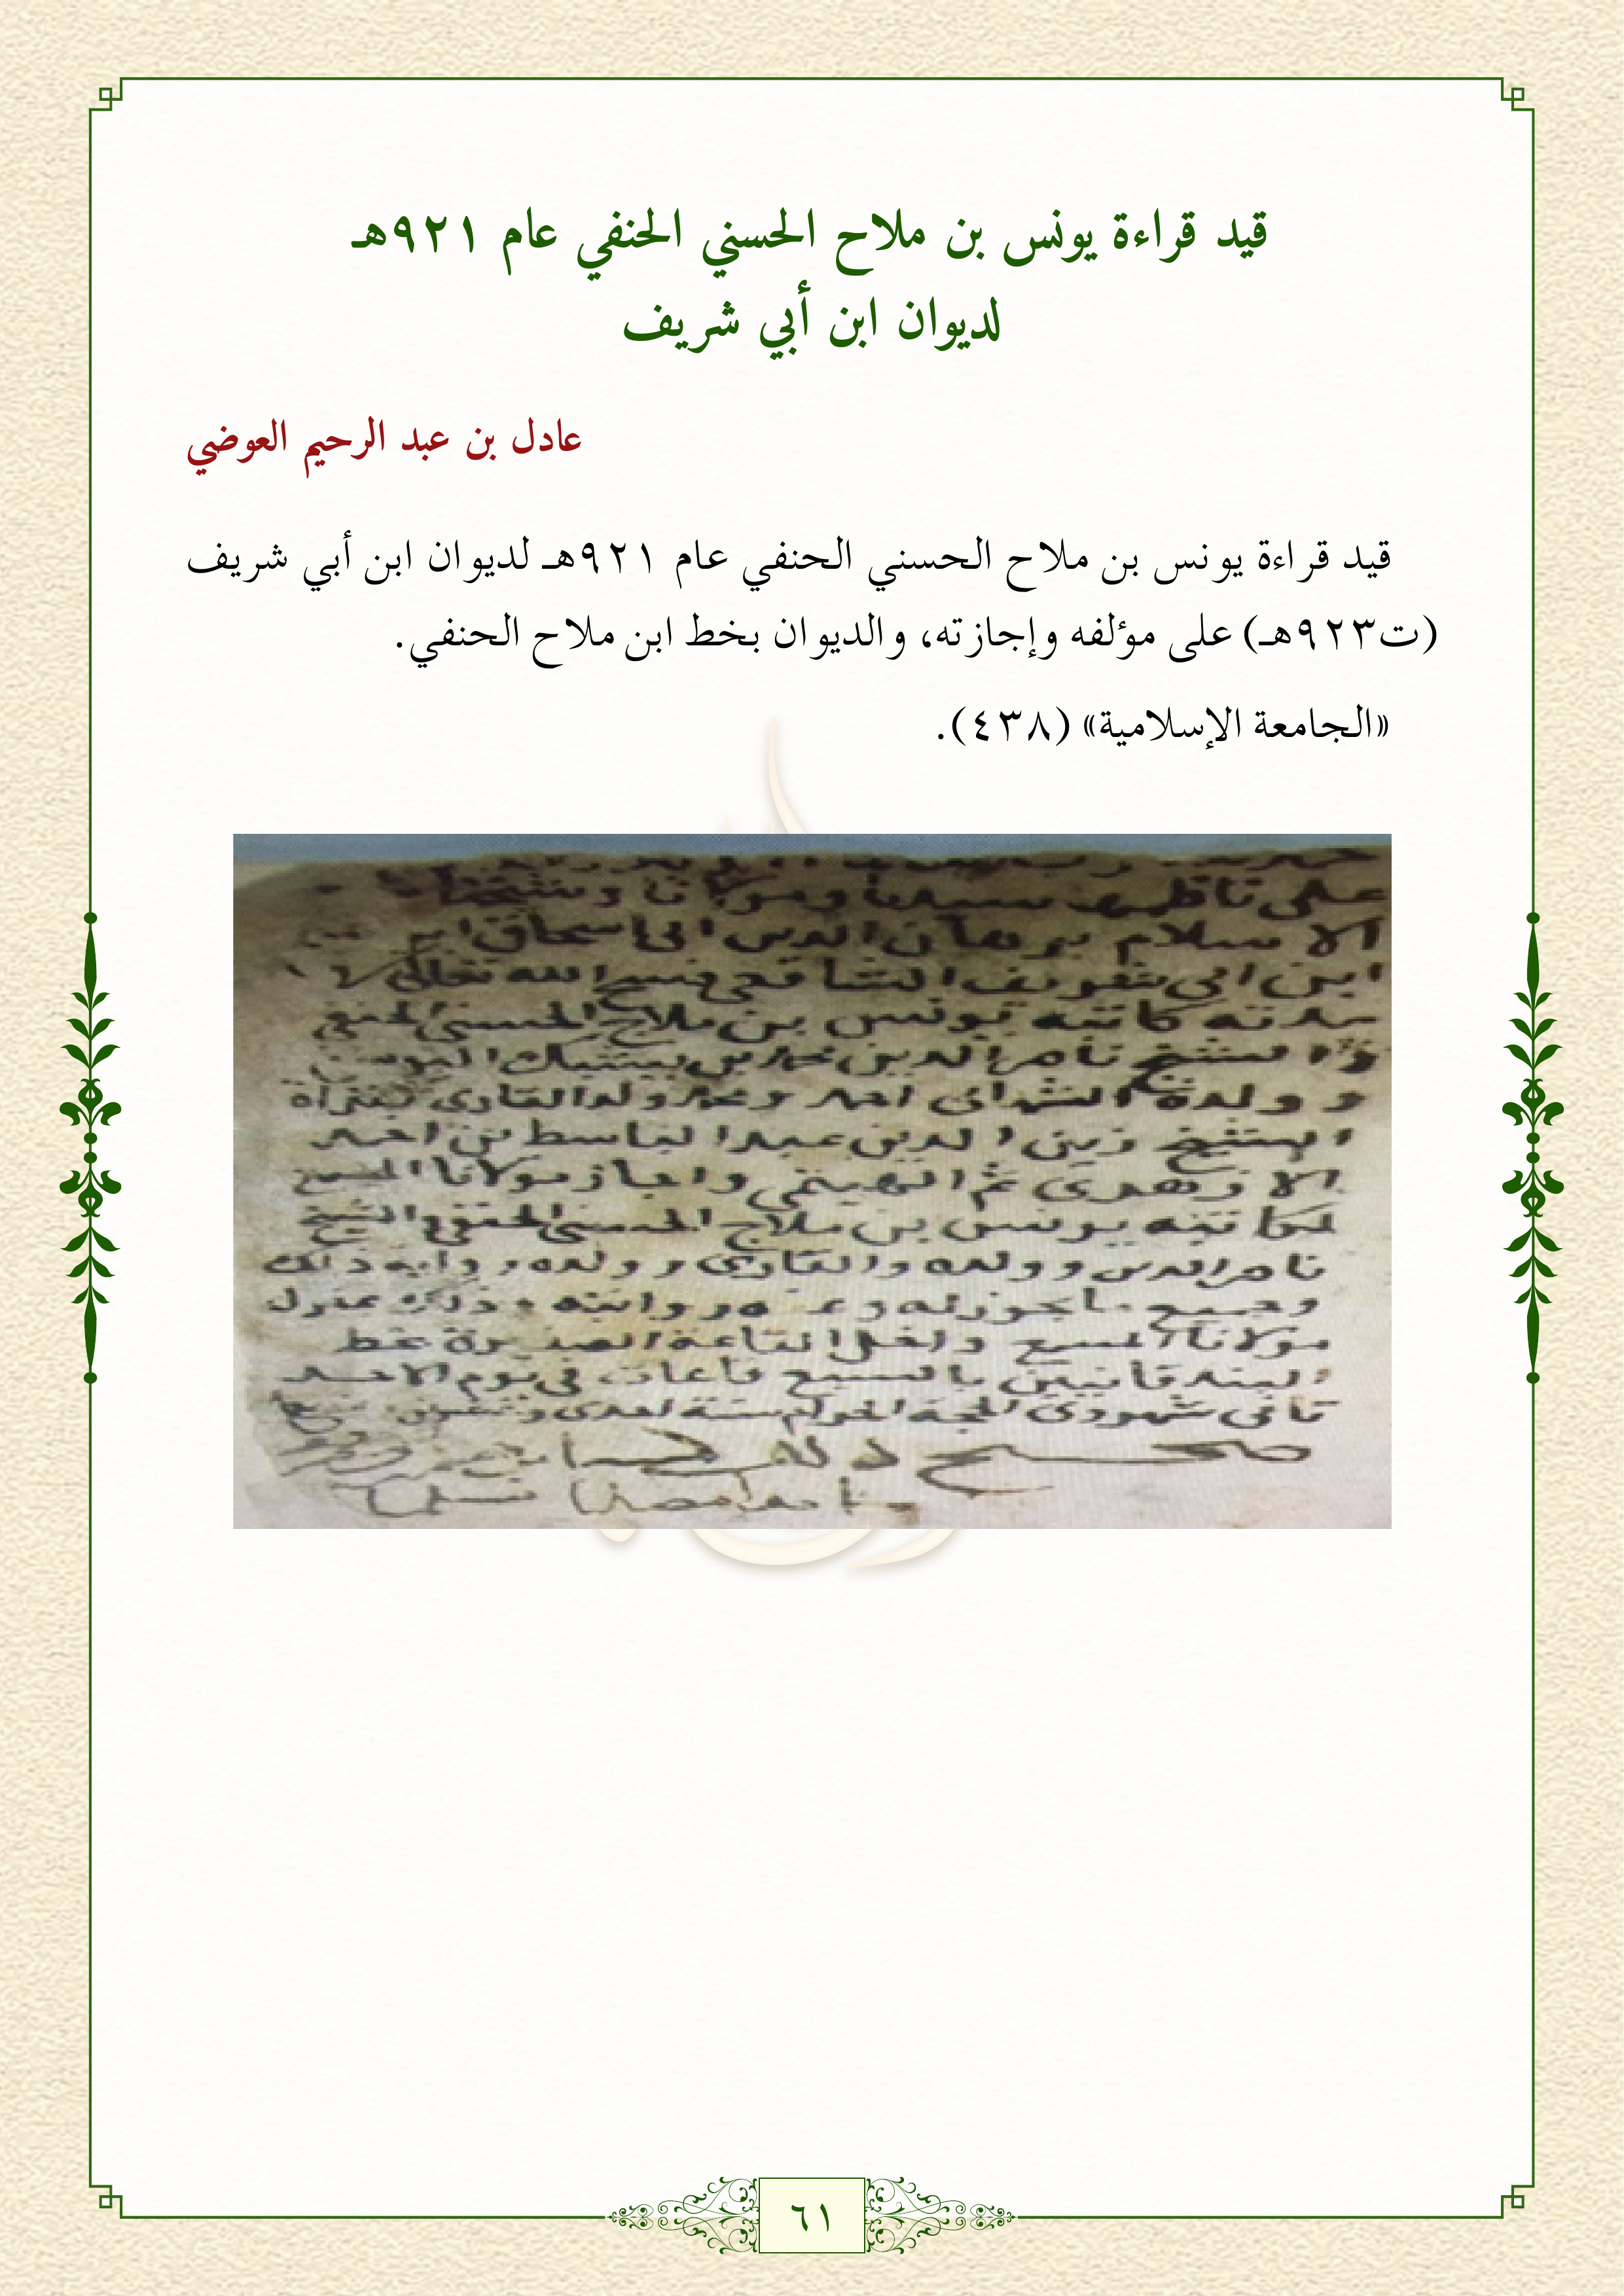 قيد قراءة يونس بن ملاح الحسني الحنفي عام ٩٢١هـ
لديوان ابن أبي شريف
عادل بن عبد الرحيم العوضي
قيد قراءة يونس بن ملاح الحسني الحنفي عام ٩٢١هـ لديوان ابن أبي شريف
(ت٩٢٣هـ) على مؤلفه وإجازته، والديوان بخط ابن ملاح الحنفي.
«الجامعة الإسلامية» (٤٣٨).
على ناظمها سيدنا ومولانا وشيخنا
الاسلام برهان الدين ابي اسحاق
ابن ابي شريف الشافعي فسح الله تعالى
كاتبه يونس بن ملاح الحسني الحنفي
والشيخ ناصر الدين محمد بن
وولده احمد ومحمد ولد القاري بقرأة
الشيخ زين الدين عبد الباسط بن احمد
الازهري ثم الهيتمي واجاز مولانا المسمع
لكاتبه يونس بن ملاح الحسني الحنفي والشيخ
ناصر الدين وولده والقاري وولده رواية ذلك
وجميع ما يجوز له وعنه روايته وذلك بمنزل
مولانا المسمع داخل القاعة الصغيرة بخط
بالسبع قاعات في يوم الاحد
ثاني شهر ذي الحجة الحرام سنة احدى وعشرين
صحيح ذلك